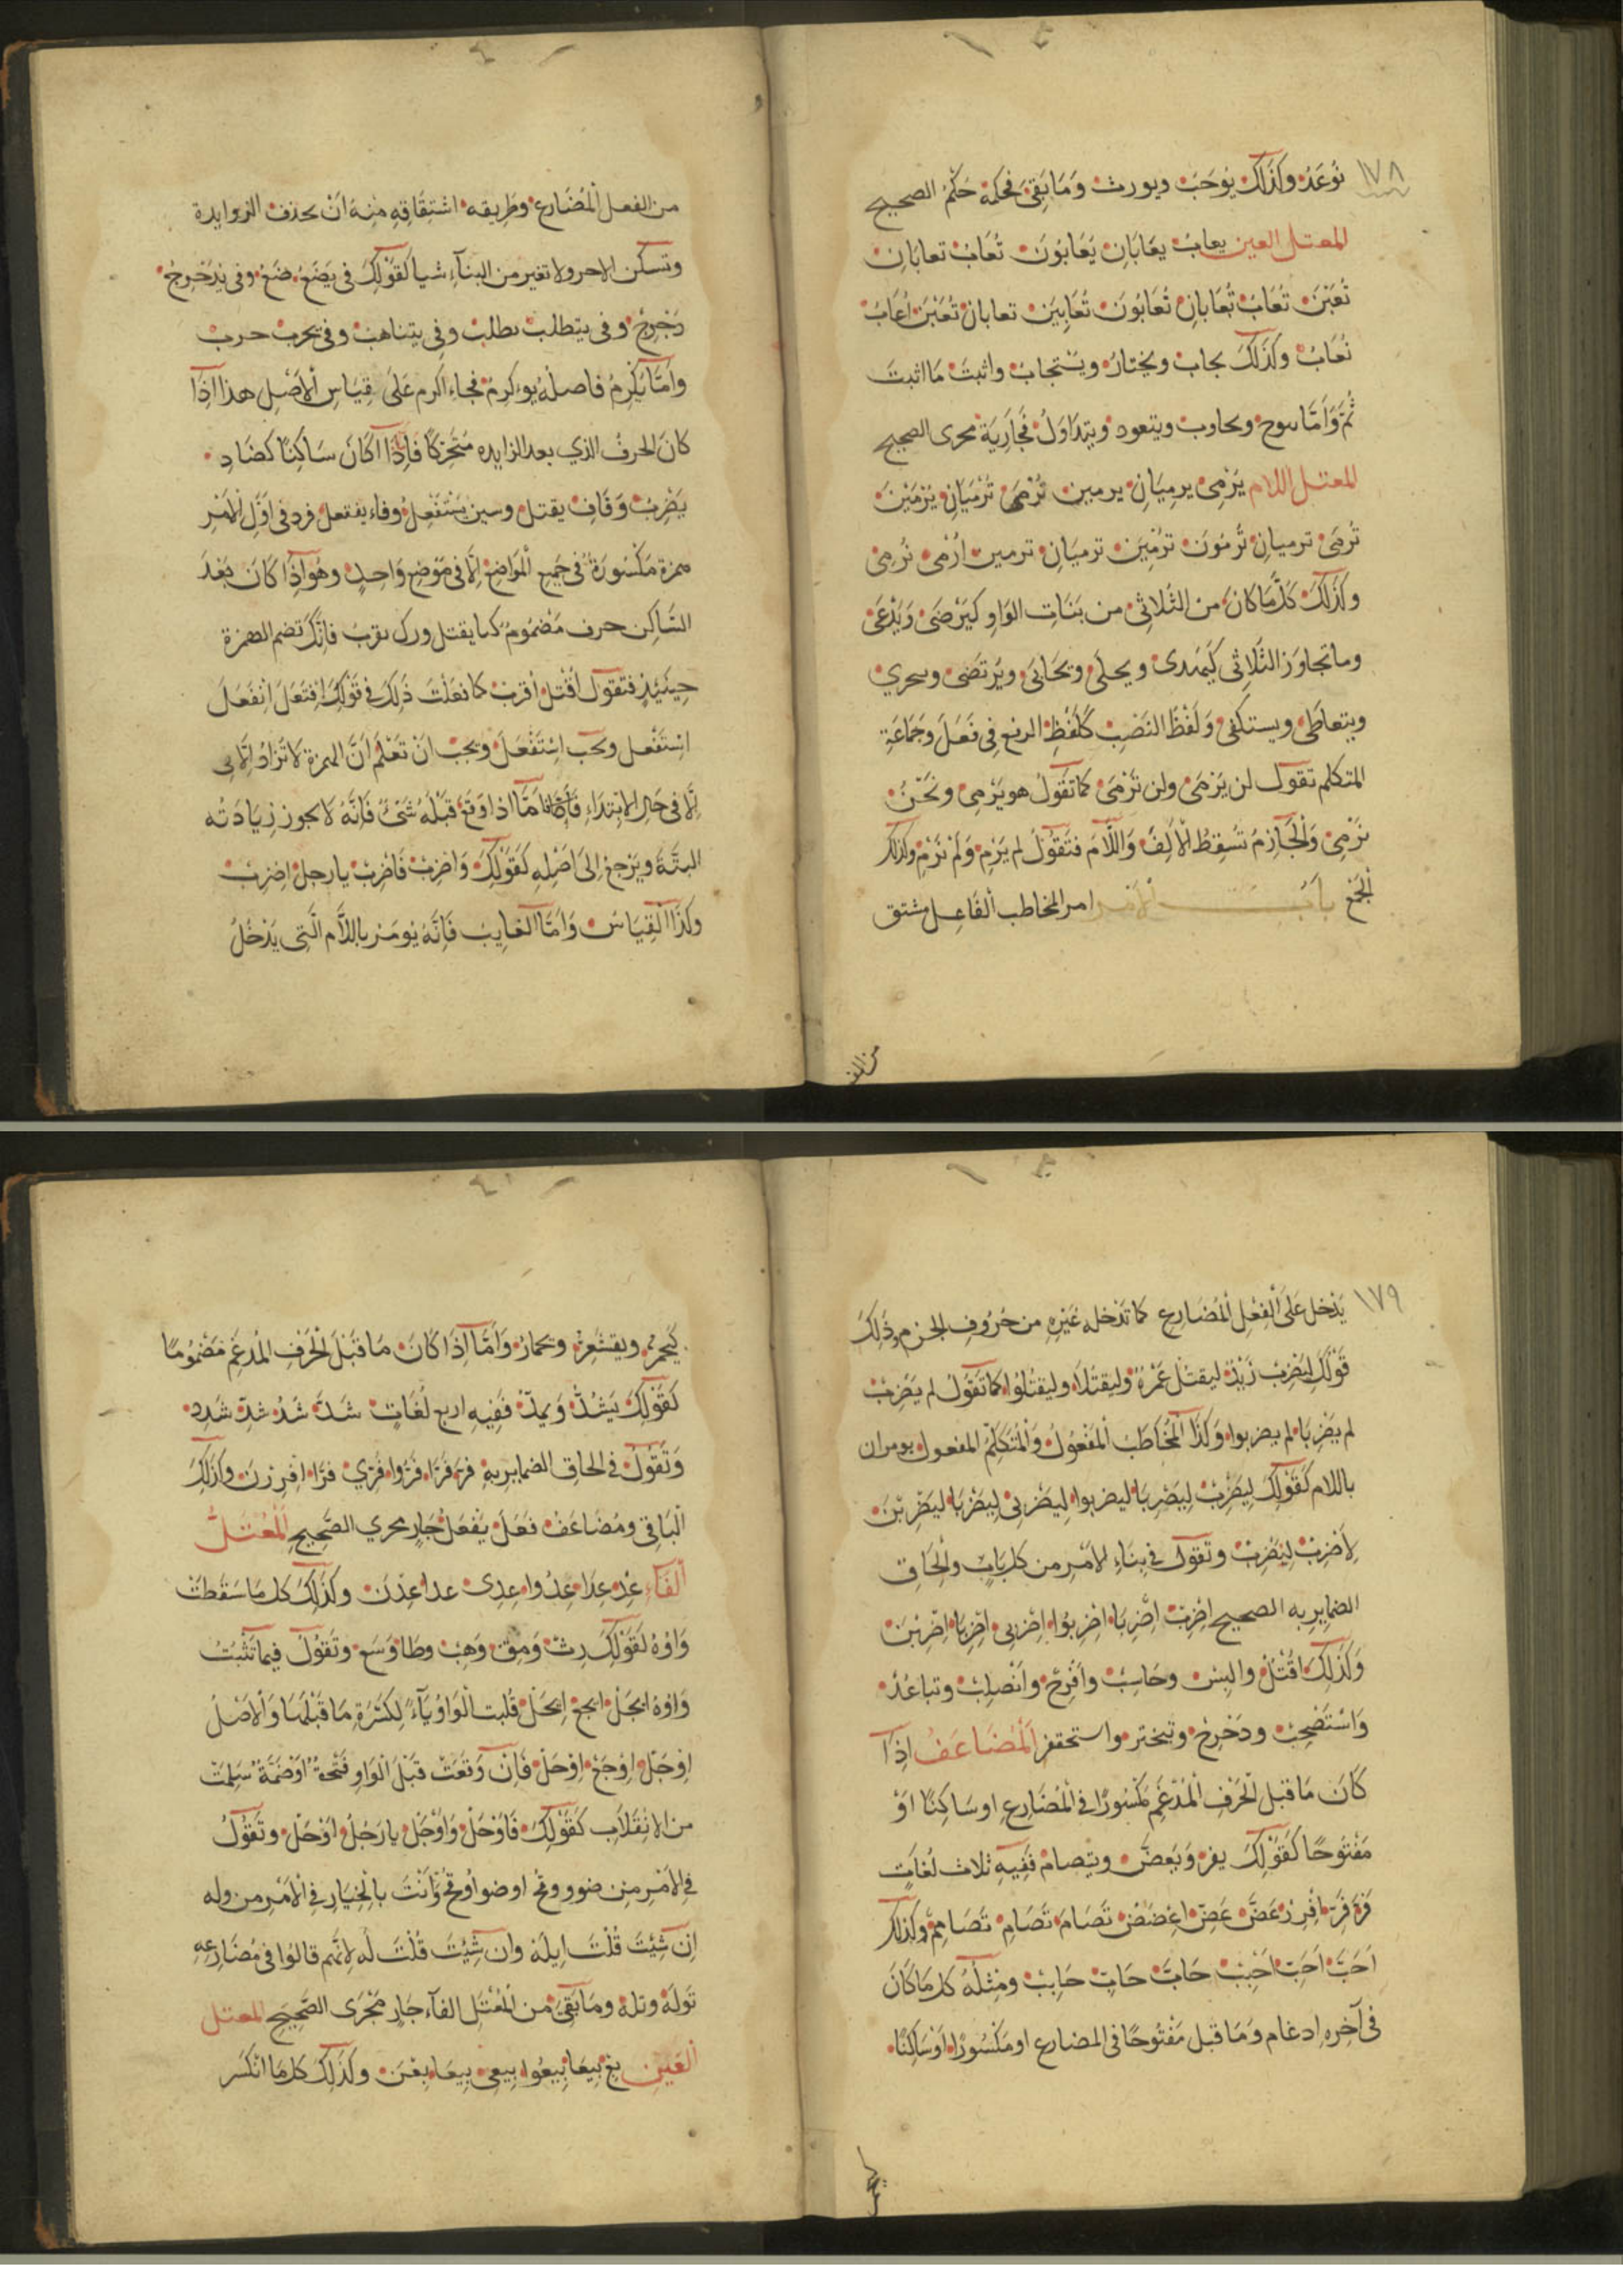 ١٧٨
نُوعَدُ وكذلك يُوجَبُ ويورث وَمَا بَقِيَ فحكمهُ حُكْمُ الصحيح
المعتل العين يعابُ يعَابَانِ يُعَابُونَ تُعَابُ تعابَانِ
تُعَبْنَ تُعَابُ تُعَابانِ تُعَابُونَ تُعَابِيَن تعابان تُعَبْنَ أُعَابُ
نُعَابُ وَكَذلكَ يجاب ويختارُ ويُسْتجابُ واثبتَ مَا اثبتَ
ثُمَّ وَأمَّا ويحاوب ويتعود ويتداوَلُ فجَارِيَة مجرى الصحيح
المعتل اللام يُرْمَى يرميَانِ يرمين تُرْمَى تُرْمَيَانِ يُرْمَيْنَ
تُرمَى ترميانِ تُرمَوْنَ تُرْمَيْنَ ترميَانِ ترمين أُرْمَى نُرمَى
وكذلكَ كلَّمَا كانَ من الثلاثىِّ من بَنَاتِ الواوِ كيُرْضَى وَيُدْعَى
وما تجاوَزَ الثلاثِى كيُهْدى ويحلَّى ويُحَابَى ويُرتَضَى
ويتعاطَى ويستكفى وَلَفْظُ النَصْبِ كلَفْظِ الرفع فِى فَعَلَ وَجَمَاعَةِ
المتكلم تقول لن يُرْمَى ولن نُرْمَى كما تقُولُ هو يُرْمى ونَحْنُ
نُرْمَى وَالْجَازِمُ تُسقِطُ الألِفَ وَاللَّامَ فتقُوْلُ لم يُرْمَ وَلَمْ نُرْمَ وكذلك
الجَمْعُ بَابُ الأمْرِ امر المخاطب الفَاعِلِ مشتق
من الف
من الفعل المُضَارع وطريقه اشتِقَاقِهِ مِنهُ أنْ تحذف الزوايدة
وتُسكن الاخر ولا تغير من البنآء شيا كقَوْلكَ فى يَضَعُ ضَعْ وفى يُدَحْرِجُ
دَحْرِجْ وفى يتطلب تطلبْ وفِى يتناهَبُ وفى يحرب حرب
وأمَّا يُكْرِمُ فاصلهُ يوءكرِمُ فجاء أكرم عَلَى قِيَاسِ الأصْلِ هذا إذَا
كانَ الحرفُ الذي بعد الزايده مُتَحَرِّكًا فَإِذَا كانَ سَاكِنًا كضَادِ
يَضْرِبُ وَقَافِ يقتل وسين يَسْتَفْعِلُ وفاء يفتعل فرد فى أوَّلِ الأمْر
همزة مَكْسُورَةً فى جَمِيع المَواضِع إلّا فى مَوْضِعٍ وَاحِدٍ وهُو إذَا كَانَ بَعْدَ
السَّاكِن حرف مَضْمُومٌ كتا يقتل ورا يقربُ فانَّكَ تضم الهمزة
حِينَئِذٍ فتقول أُقْتل أقرب كما فعَلْتَ ذَلِكَ فى قَوْلِكَ افتَعَلَ انفَعَلَ
اسْتَفْعل ويجب اسْتَفْعَلَ ويجبُ أنْ تَعْلَمَ أنَّ الهمزة لَا تُزَادُ إلّا فى
إلّا فى حَالِ الابتدَاءِ فَأمَّا اذا وَقعَ قَبْلَهُ شَىْءٌ فَانَّهُ لَا يجوز زِيَادَتُه
البتَّةَ ويَرْجعُ إلىَ اصْلِهِ كَقَوْلِكَ وَاضرِبْ فَاضْرِبْ يا رجل اضربْ
وكذا القِيَاسُ وَامَّا الغايب فَانَّهُ يُومَرُ باللَّام التى يَدْخُلُ
١٧٩
يَدْخل علَى الفِعْلِ المُضَارِعِ كما تَدْخله غَيْرِهِ من حُرُوفِ الجزم وذَلِكَ
قَوْلُكَ ليَضْرِبْ زَيْدٌ ليقتُلْ عَمْروٌ وليقتُلَا وليقتُلُوا كما تَقُوْلُ لم يَضْرِبْ
لم يَضْرِبَا لم يضربوا وَكَذَا المُخاطَبُ المَفعُولُ وَالمُتَكلِّمُ المفعول يومران
باللام كَقَوْلِكَ لِيَضْرِبْ لِيَضْرِبَا ليضربوا لِيَضْرِبِى لِيَضْرِبَا ليَضْرِبْنَ
لِأضرِبْ لِيَضْرِبْ وتقول فى بِنَاءِ الأمْرِ من كل بَابٍ والْحَاقِ
الضمايرِ به الصحيح اضْرِبْ اضْرِبَا اضْرِبُوا اضْرِبى اضْرِبا اضْرِبْنَ
وَكذَلِكَ اقْتُلْ والبس وحَاسِبْ وافْرِحْ وَانْصلِبْ وتباعَدْ
وَاسْتَصْحِبْ ودَحْرِجْ وتبختر واستحقز المُضَاعَفُ إذَا
كَانَ مَا قبل الْحَرْفِ المُدْغَمِ مَكْسُورًا فى المُضَارِعِ او سَاكِنًا أوْ
مَفْتُوحًا كَقَوْلِكَ يفر وَيَعَضُّ ويتصامُ فَفِيهِ ثلاث لُغَاتٍ
فِرَّ فِرِّ افْرِرْ عَضَّ عَضِّ اعْضَضْ تَصَامَّ تَصَامِّ تَصَامَمْ وكذلك
أحَبَّ أحِبِّ أحْبِبْ حَابَّ حَابِّ حَابِبْ ومِثلُهُ كل مَا كَانَ
فى آخِرِهِ إدغام وَمَا قبل مَفْتُوحًا فى المضارع او مَكْسُورًا أوْسَاكِنًا
كيَحْمَرُّ ويقشَعِرُّ ويحمارُّ وَامَّا إذَا كَانَ مَا قَبْلَ الْحَرْفِ المُدغَم مَضْمُومًا
كَقَوْلِكَ يَشُدُّ وَيَمدُّ فَفِيهِ اربع لُغَاتٍ شُدَّ شُدُّ شُدِّ أشْدُدْ
وَتَقُوْلُ فى الحاقِ الضمايرِ بِهِ فِرَّ فِرَّا فِرُّوا فِرِّي فِرَّا افرِرْنَ وكذلك
البَاقِى ومُضَاعَفُ فَعَلَ يَفعَلُ جَارٍ مجرى الصَّحِيحِ المُعْتَلُّ
الْفَآء عِدْ عِدَا عِدُوا عِدِى عدا عِدْنَ وكذَلكَ كل مَا سَقَطَتْ
وَاوُهُ كَقَوْلِكَ رِثْ وَمِقْ وَهَبْ وطَا وَسَعْ وتَقُوْلُ فيما تَثْبُتُ
وَاوُهُ ايجَلْ ايجعْ ايْحَلْ قُلبت الْوَاوُ يَآءً لِكَسْرَةِ مَا قَبْلَهَا وَالأصْلُ
اوْجَلْ اوْجَعْ اوْحَلْ فَانْ وَقَعَتْ قَبْلَ الْوَاوِ فَتْحَةٌ اوْضَمَّةٌ سَلِمَتْ
من الانقِلَابِ كَقَوْلِكَ فَاوْحَلْ وَاوْجَلْ يا رَجُلُ اوْحَلْ وتَقُوْلُ
فى الأمْرِ مِنْ ضوو وقح اوضو اوقح وَانتَ بالْخِيَارِ فى الأمْرِ من وله
إنْ شِئْتَ قُلْتَ ايلَهْ وان شِئْتَ قُلْتَ لَه لِأنهم قالوا فى مُضَارِعِهِ
تَولَهُ وتلهُ ومَا بَقِىَ من المُعْتَل الفآء جَارٍ مَجْرَى الصَّحِيحِ المعتل
العَين بعْ بِيعَا بيعُوا بِيعى بِيعا بِعْنَ وكَذَلِكَ كل مَا انْكَسَرَ